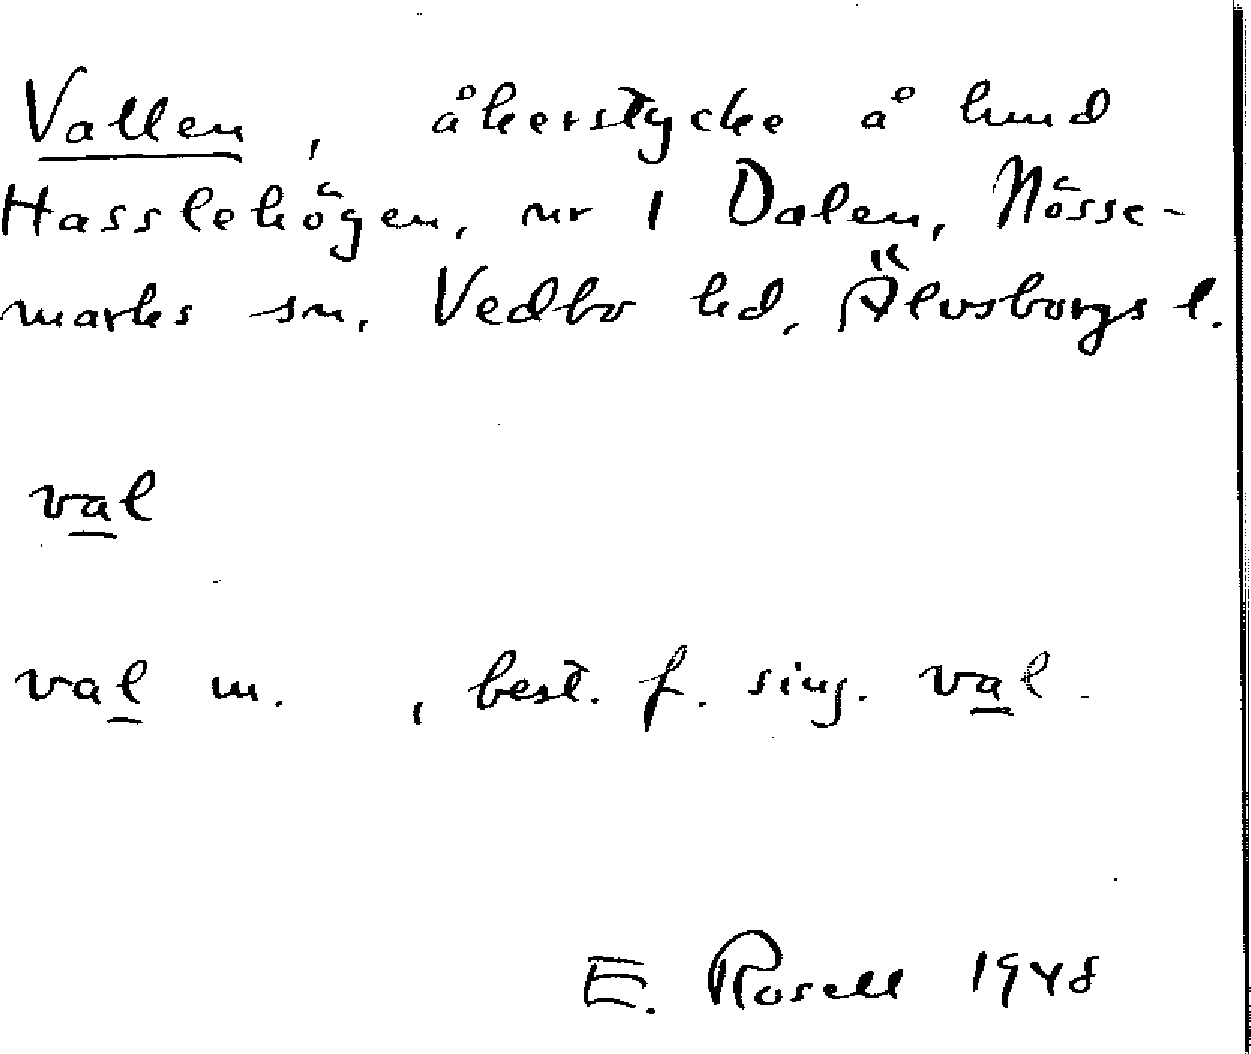 Vallen, åkerstycke å hmd
Hasslehögen, nr 1 Dalen, Nösse-
marks sn, Vedbo hd, Älvsborgs l.
val
val m. , best. f. sing. val.
E. Rosell 1948